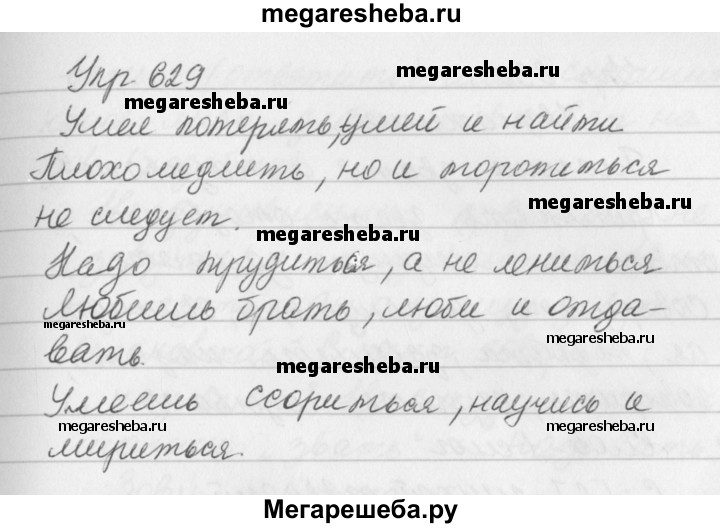 megaresheba.ru
Упр 629
megaresheba.ru
megaresheba.ru
Умел потерять, умей и найти
Плохо медлить, но и торопиться
megaresheba.ru
не следует.
megaresheba.ru
Надо трудиться, а не лениться
Любишь брать, люби и отда-
megaresheba.ru
megaresheba.ru
вать.
megaresheba.ru
Умеешь ссориться, научись и
мириться.
Мегарешеба.ру